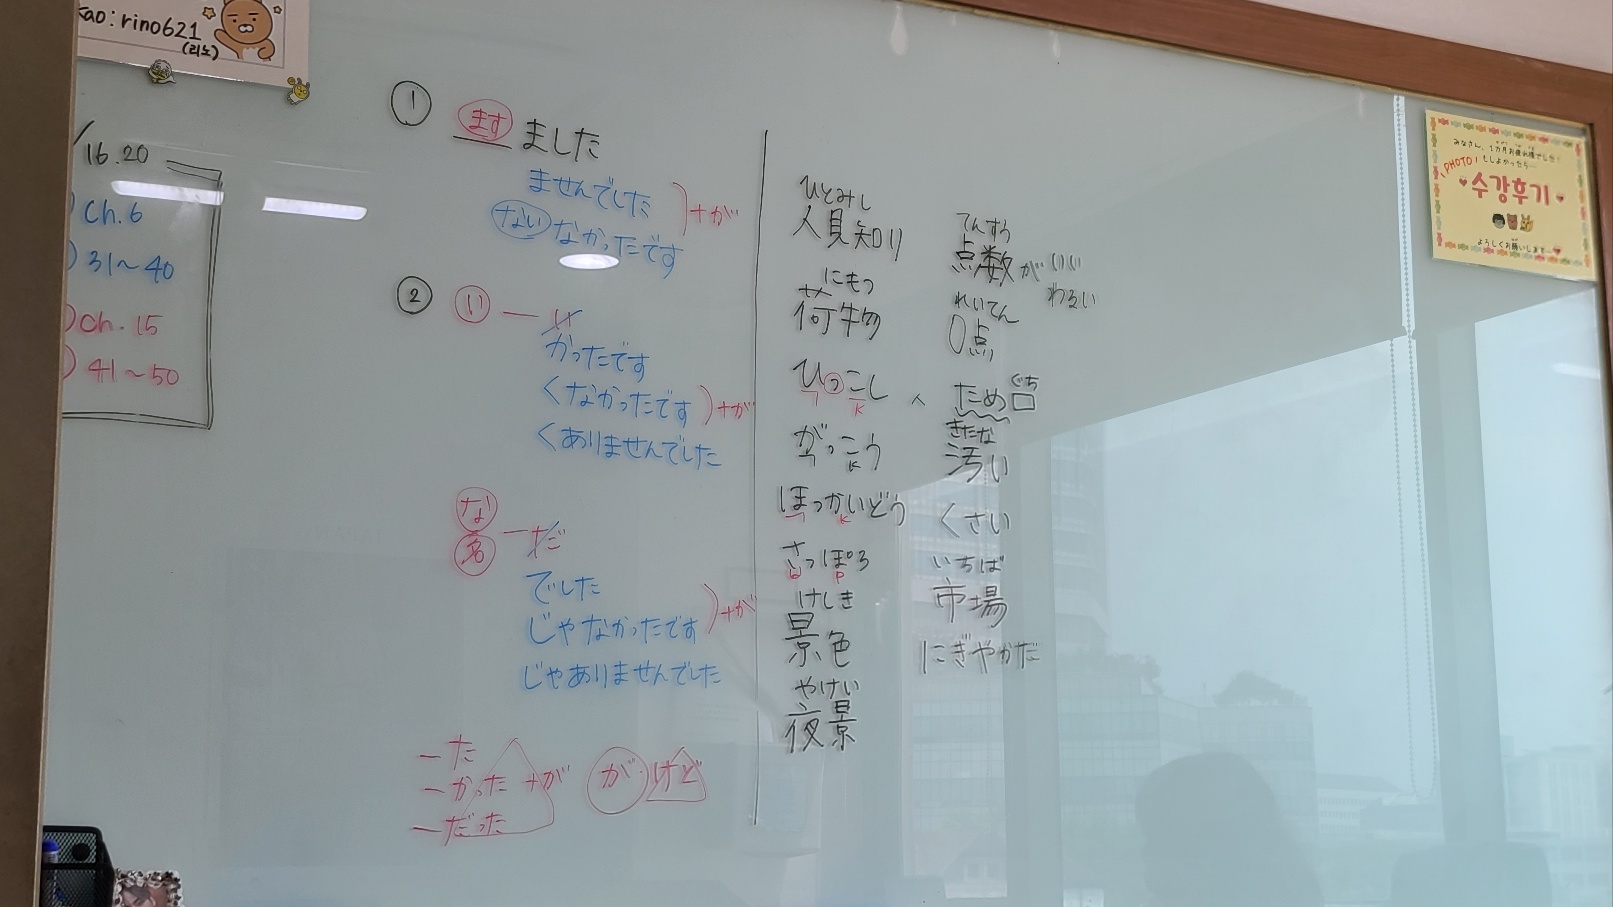 Kao: rino621
(리노)
16.20
Ch.6
31~40
Ch.15
41~50
① ます ました
ませんでした
ない なかったです
+が
② い ー い
かったです
くなかったです
くありませんでした
+が
な
名
ーだ
でした
じゃなかったです
じゃありませんでした
+が
ーた
ーかった +が
ーだった
が・けど
ひとみし
人見知り
にもつ
荷物
ひっこし
ㄱ K
がっこう
ㄱ K
ほっかいどう
ㄱ K
さっぽろ
ㅂ P
けしき
景色
やけい
夜景
てんすう
点数が いい
わるい
れいてん
0点
ぐち
ため口
きたな
汚い
くさい
いちば
市場
にぎやかだ
みなさん、1カ月お疲れ様でした!
PHOTO! もしよかったら…
수강후기
よろしくお願いします…